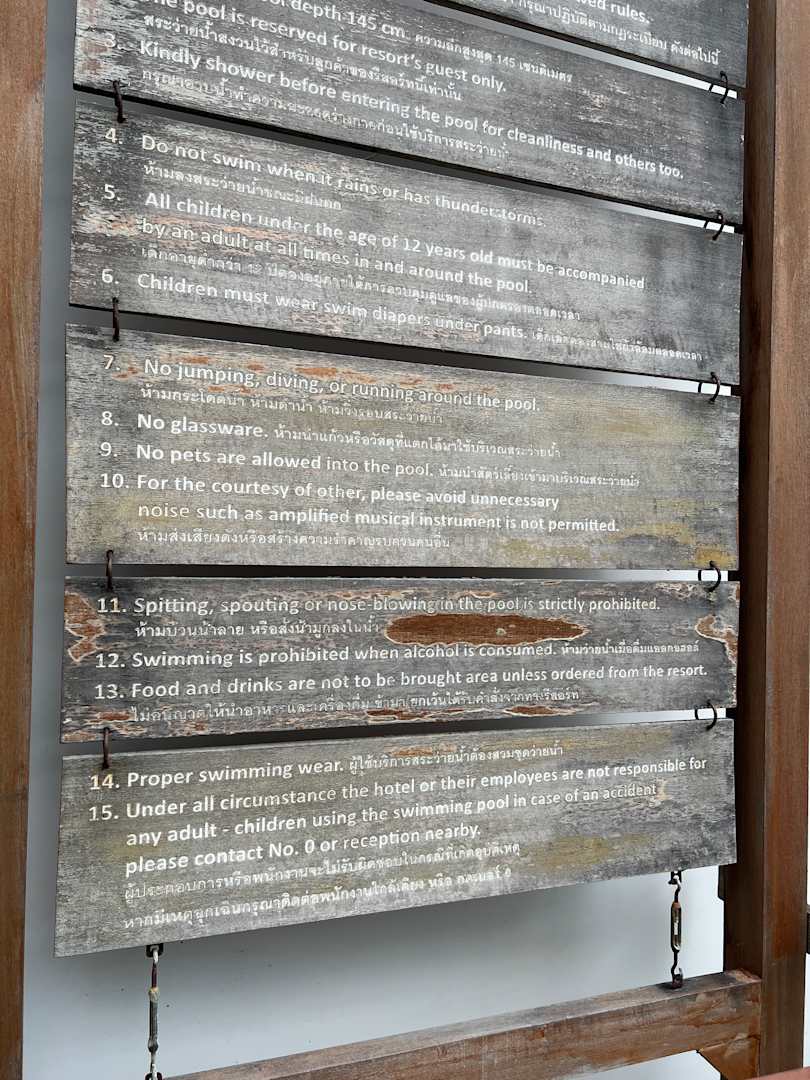 rules.
กรุณาปฏิบัติตามกฎระเบียบ ดังต่อไปนี้
depth 145 cm. ความลึกสูงสุด 145 เซนติเมตร
pool is reserved for resort's guest only.
สระว่ายน้ำสงวนไว้สำหรับลูกค้าของรีสอร์ทนี้เท่านั้น
3. Kindly shower before entering the pool for cleanliness and others too.
กรุณาอาบน้ำทำความสะอาดร่างกายก่อนใช้บริการสระว่ายน้ำ
4. Do not swim when it rains or has thunderstorms.
ห้ามลงสระว่ายน้ำขณะมีฝนตก
5. All children under the age of 12 years old must be accompanied
by an adult at all times in and around the pool.
เด็กอายุต่ำกว่า 12 ปีต้องอยู่ภายใต้การควบคุมดูแลของผู้ปกครองตลอดเวลา
6. Children must wear swim diapers under pants. เด็กเล็กต้องสวมใส่ผ้าอ้อมตลอดเวลา
7. No jumping, diving, or running around the pool.
ห้ามกระโดดน้ำ ห้ามดำน้ำ ห้ามวิ่งรอบสระว่ายน้ำ
8. No glassware. ห้ามนำแก้วหรือวัสดุที่แตกได้มาใช้บริเวณสระว่ายน้ำ
9. No pets are allowed into the pool. ห้ามนำสัตว์เลี้ยงเข้ามาบริเวณสระว่ายน้ำ
10. For the courtesy of other, please avoid unnecessary
noise such as amplified musical instrument is not permitted.
ห้ามส่งเสียงดังหรือสร้างความรำคาญรบกวนคนอื่น
11. Spitting, spouting or nose-blowing in the pool is strictly prohibited.
ห้ามบ้วนน้ำลาย หรือสั่งน้ำมูกลงในน้ำ
12. Swimming is prohibited when alcohol is consumed. ห้ามว่ายน้ำเมื่อดื่มแอลกอฮอล์
13. Food and drinks are not to be brought area unless ordered from the resort.
ไม่อนุญาตให้นำอาหารและเครื่องดื่ม เข้ามา ยกเว้นได้รับคำสั่งจากทางรีสอร์ท
14. Proper swimming wear. ผู้ใช้บริการสระว่ายน้ำต้องสวมชุดว่ายน้ำ
15. Under all circumstance the hotel or their employees are not responsible for
any adult - children using the swimming pool in case of an accident
please contact No. 0 or reception nearby.
ผู้ประกอบการหรือพนักงานจะไม่รับผิดชอบในกรณีที่เกิดอุบัติเหตุ
หากมีเหตุฉุกเฉินกรุณาติดต่อพนักงานใกล้เคียง หรือ กดเบอร์ 0